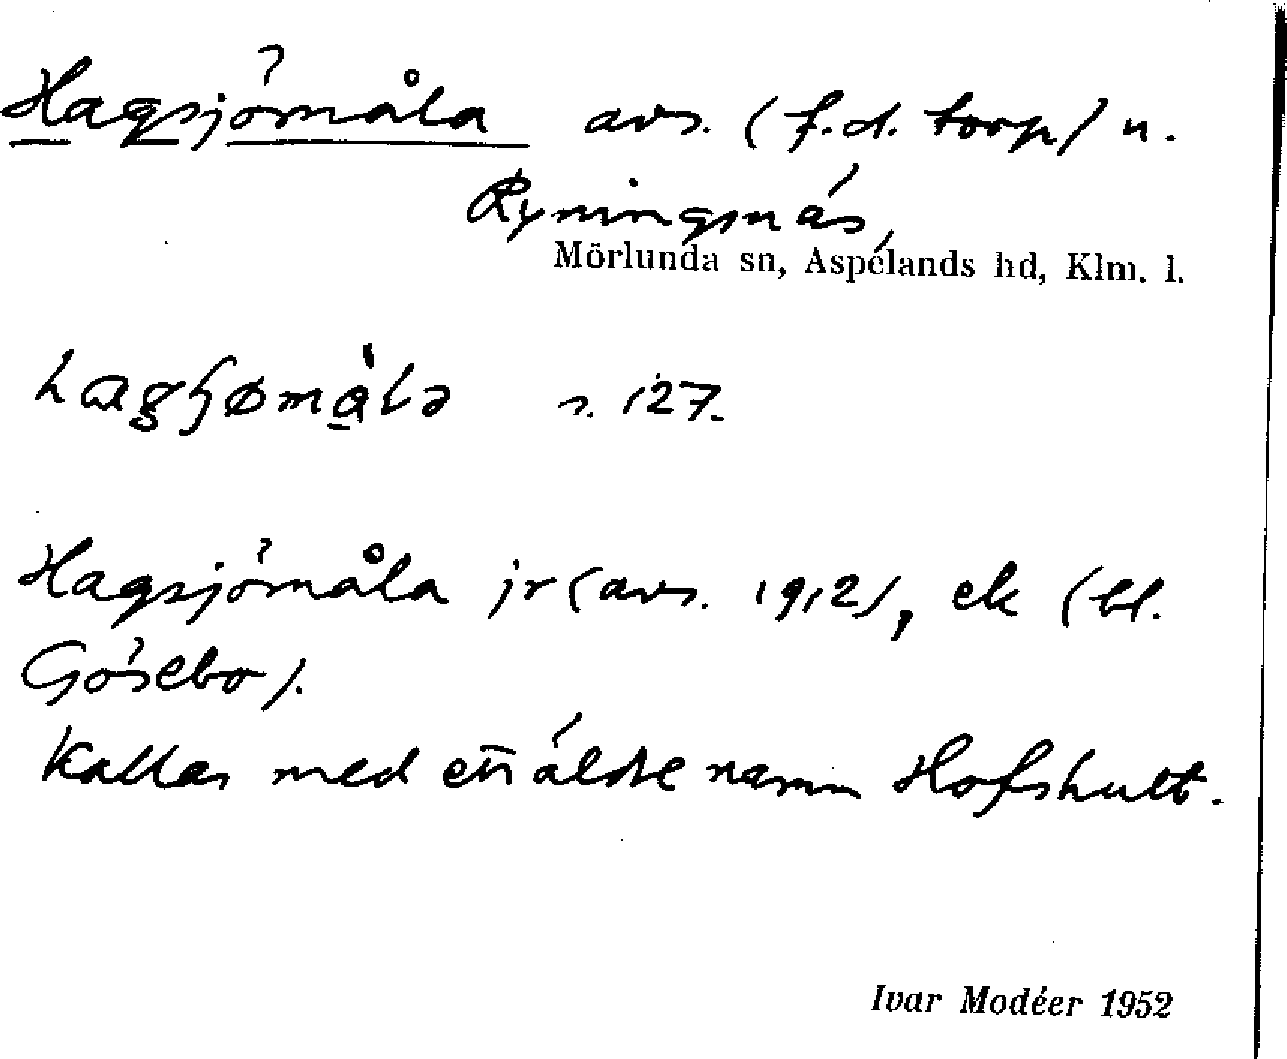 Hagsjömåla avs. (f.d. torp) u.
Ryningsnäs,
Mörlunda sn, Aspelands hd, Klm. l.
s. 127.
Hagsjömåla jr (avs. 1912), ek (bl.
Gösebo).
Kallas med ett äldre namn Hofshult.
Ivar Modéer 1952